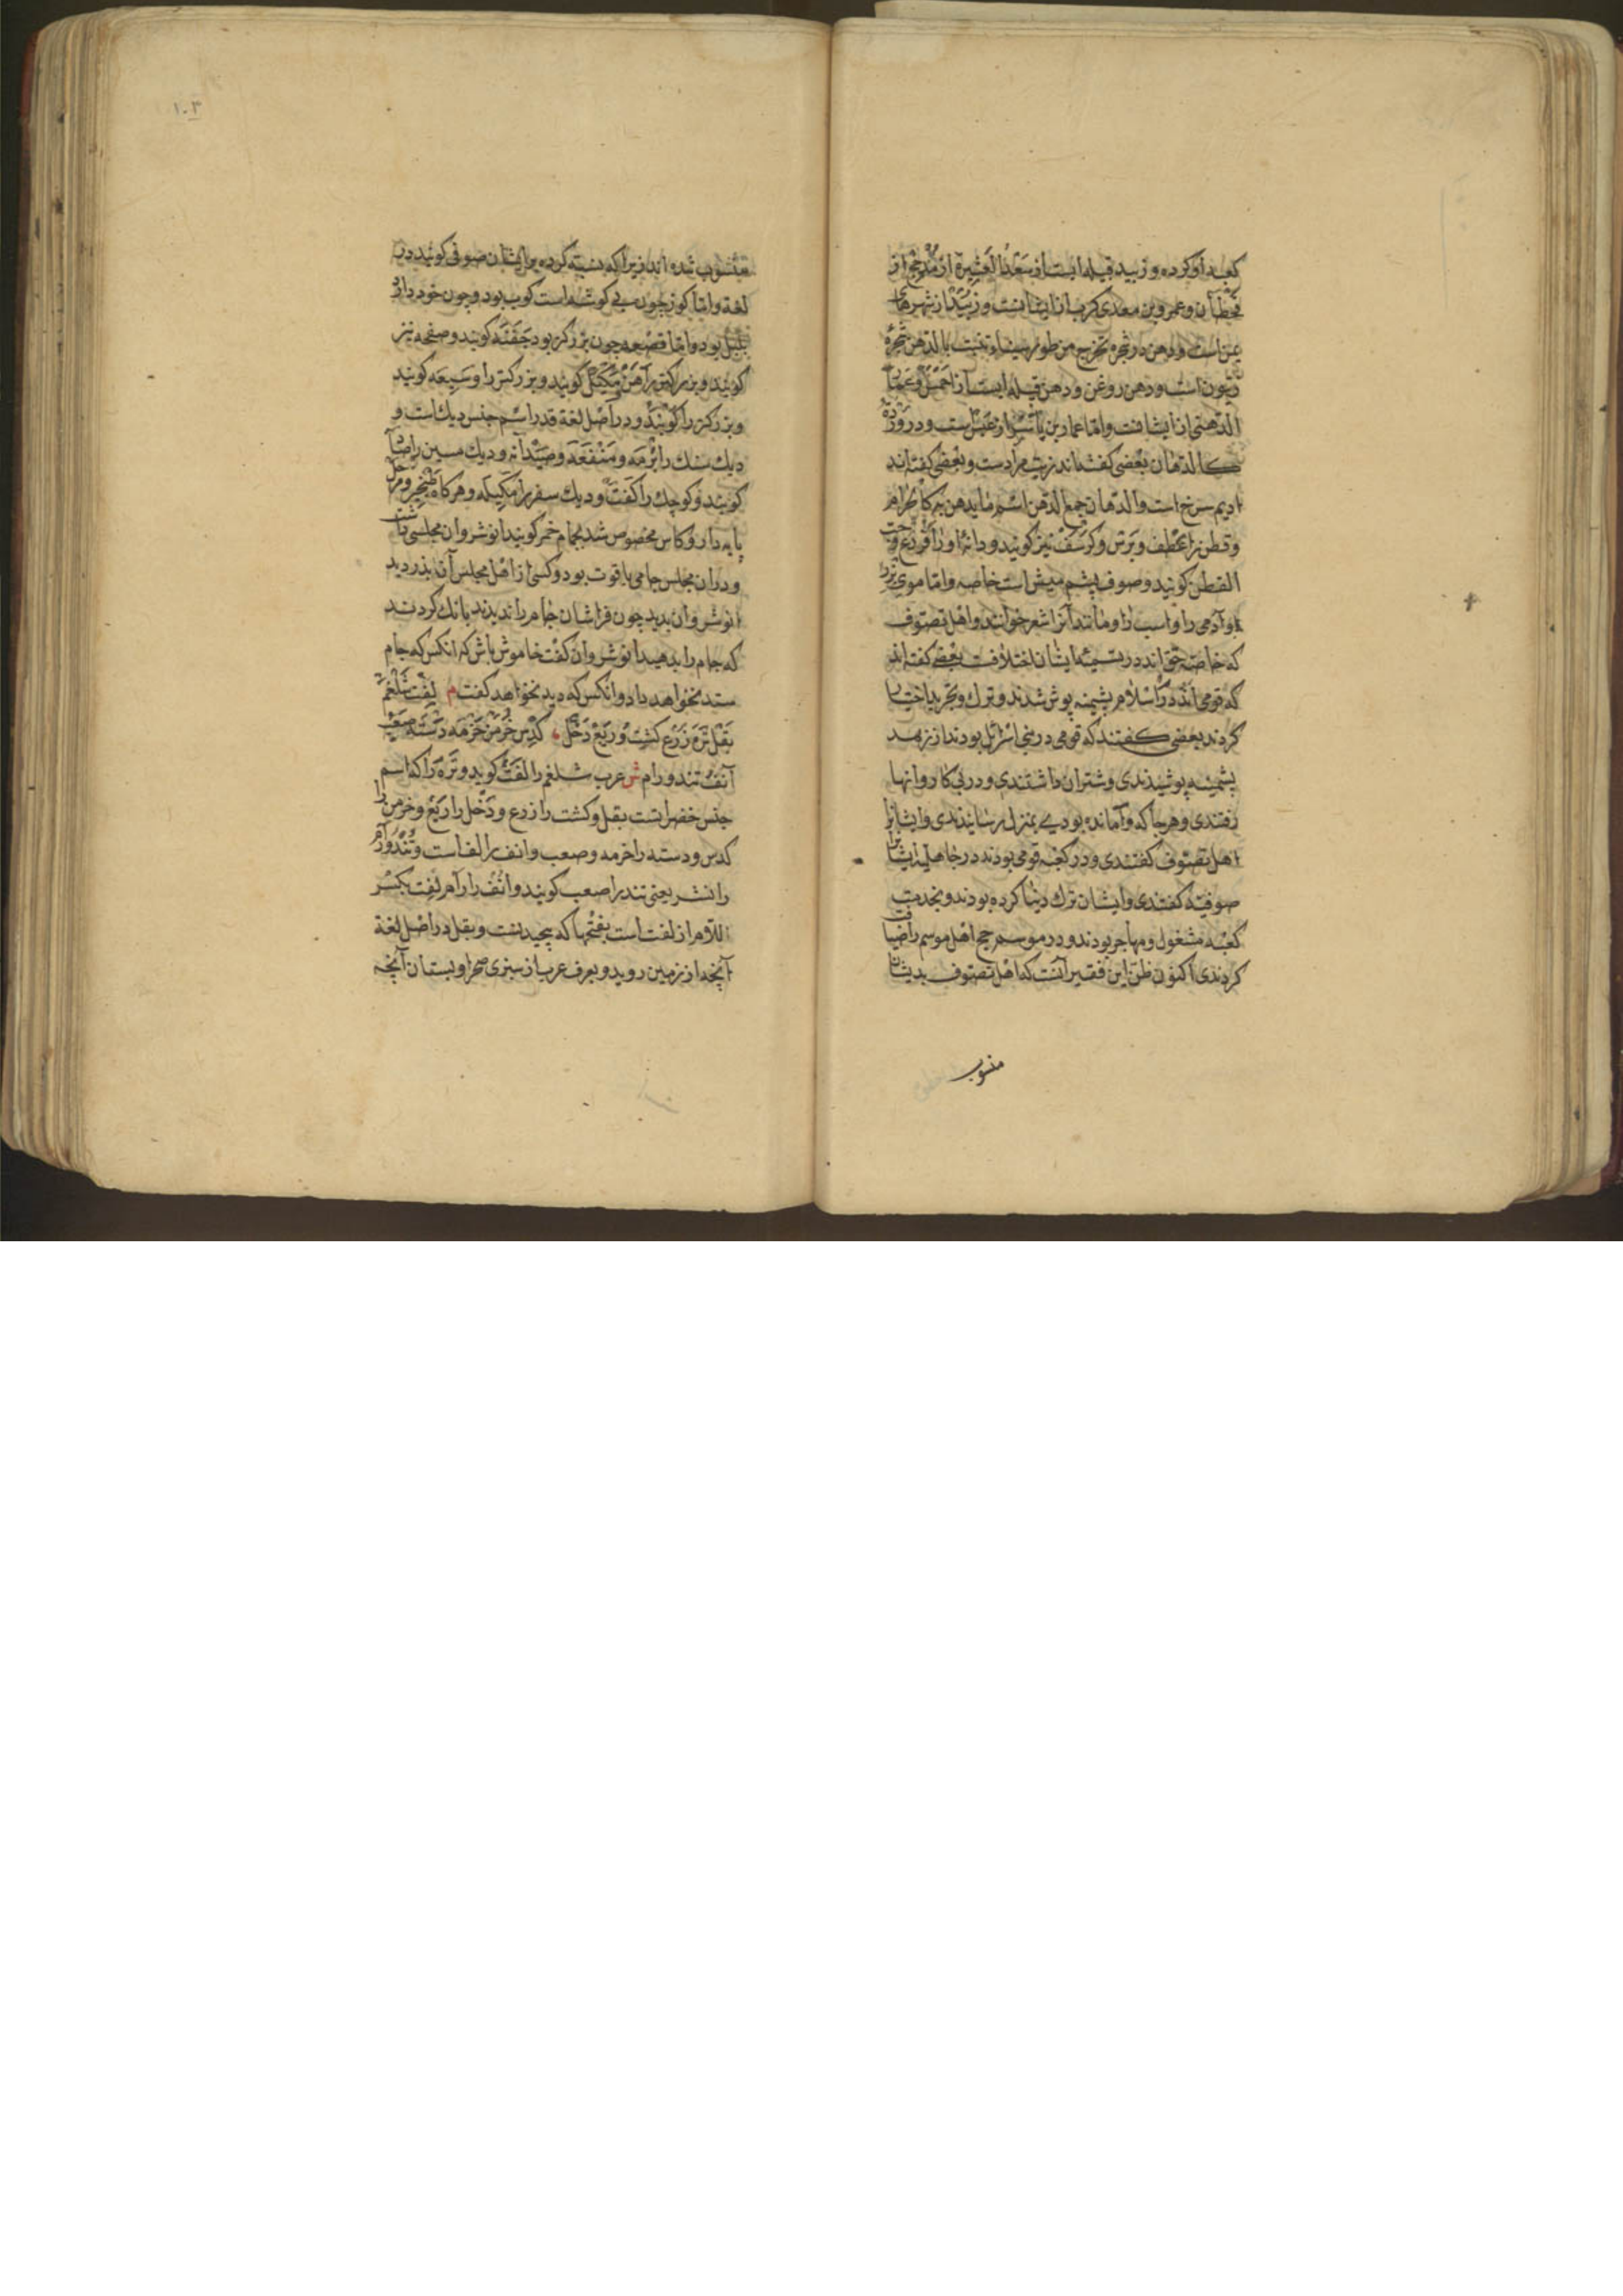 كعبه او كرده و زبيد قبيله ايست از سَعْدُ العَشِيرة از مُذحِج از
قحطان و عمرو بن معدى كرب از ايشانست و زَبِيْد از شهرهاى
يمن است و دهن در شجرة تخرج من طور سيناء تنبت بالدهن شجرهٔ
زيتون است و دهن روغن و دهن قبيله ايست از
الدهنى از ايشانست و اما عمار بن ياسر از عنس است و در وَرْدَةً
كالدهان بعضى كفته اند زيت مراد است و بعضى كفته اند
اديم سرخ است والدهان جمع الدهن اسم ما يدهن به
و قطن را عُطُف و بَرْس و كُرسُف نيز كويند و دانهٔ او را
القطن كويند و صوف پشم ميش است خاصه و اما موى بز را
و آدمى را و اسب را و مانند آنرا شعر خوانند و اهل تصوف
كه خاصهٔ حق اند در تسميهٔ ايشان اختلافست بعضى كفته اند
كه قومى اند در اسلام پشمينه پوش شدند و ترك و تجريد اختيار
كردند بعضى كفتند كه قومى در بنى اسرائيل بودند از زهد
پشمينه پوشيدندى و شتران داشتندى و در پى كاروانها
رفتندى و هرجا كه وامانده بودى بمنزل رسانيدندى و ايشانرا
اهل تصوف كفتندى و در كعبه قومى بودند در جاهليت ايشانرا
صوفيه كفتندى و ايشان ترك دنيا كرده بودند و بخدمت
كعبه مشغول و مهاجر بودند و در موسم حج اهل موسم را ضيافت
كردندى اكنون ظن اين فقير آنست كه اهل تصوف بديشان
منسوب
١٠٣
منسوب شده اند زيرا كه نسبة كرده بر ايشان صوفى كويند در
لغة و اما كوز چون بى كوشه است كوب بود و چون خود دارد
بلبل بود و اما قصعه چون بزركتر بود جَفْنَه كويند و صفحه نيز
كويند و بزركتر از آهن مِكْتَل كويند و بزركتر را وسيعه كويند
و بزركتر را كويند و در اصل لغة قدر اسم جنس ديك است و
ديك سنك را بُرْمَه و مَنْقَعَه و صَيْدَانه و ديك مسين را صاد
كويند و كوچك را كَفْت و ديك سفر را مكيله و هركاه طنجير و مرجل
پايه دار و كاس مخصوص شد بجام خمر كويند انوشروان مجلسى داشت
و در ان مجلس جامى ياقوت بود و كسى از اهل مجلس آن بدزديد
انوشروان بديد چون فراشان جام را نديدند بانك كردند
كه جام را بدهيد انوشروان كفت خاموش باش كه انكس كه جام
ستد نخواهد داد و انكس كه ديد نخواهد كفت م لِفْت شَلْغَمْ
بَقْل تَرَه زَرْع كشت وُ رَيْع دَخْل كُدِس خَرْمَن حُزْمَه دَسْتَه صَعْب
آنفْ تند و رام ش عرب شلغم را لَفْت كويد و تَرَه را كه اسم
جنس خضرا است بقل و كشت را زرع و دَخْل را رَيْع و خرمن را
كدس و دسته را خزمه و صعب و انف را لف است و تُنْدُ و رام
را نشر يعنى تند را صعب كويند و انُف را رام لِفت بكسر
اللام از لفت است بفتحها كه پيچيدنست و بقل در اصل لغة
آنچه از زمين رويد و بعرف عرب از سبزى صحرا و بستان آنچه